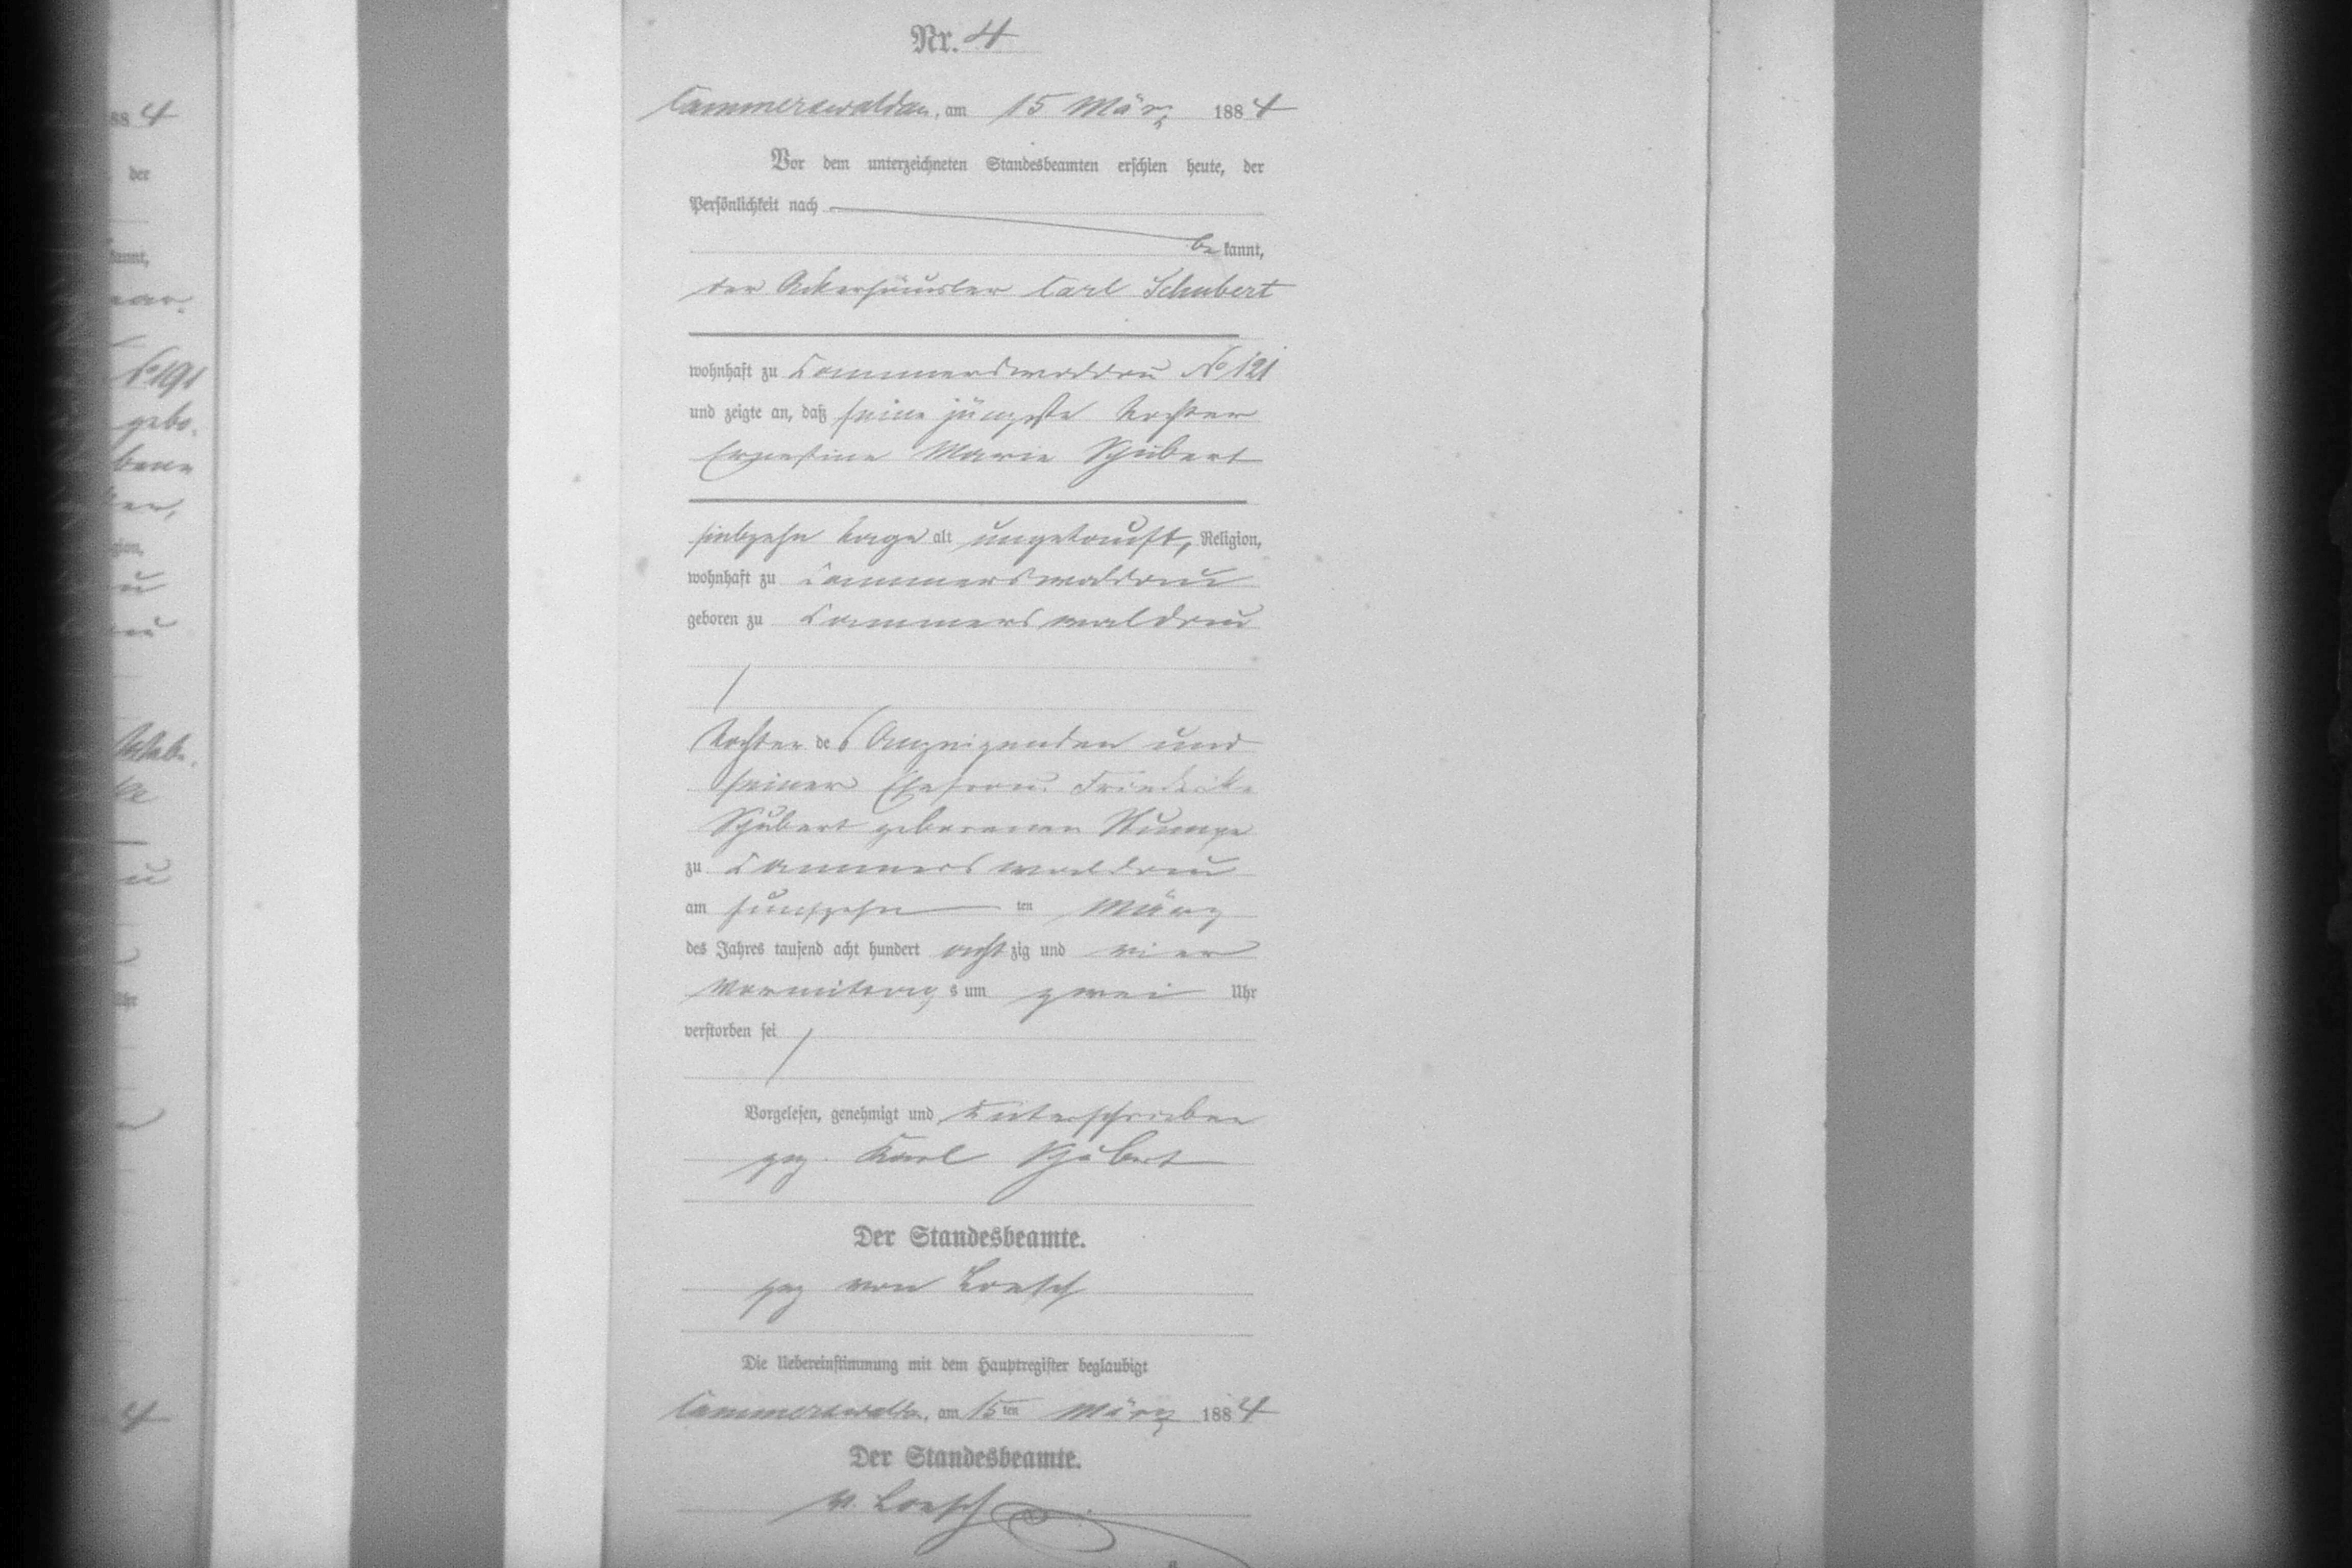 Nr. 4
Cammerswaldau, am 15 März 1884
Vor dem unterzeichneten Standesbeamten erschien heute, der
Persönlichkeit nach
be kannt,
der Ackerhäusler Carl Schubert
wohnhaft zu Cammerswaldau No 121
und zeigte an, daß seine jüngste Tochter
Ernestine Marie Schubert
siebzehn Tage alt ungetauft, Religion,
wohnhaft zu Cammerswaldau
geboren zu Cammerswaldau
Tochter des Anzeigenden und
seiner Ehefrau Friederike
Schubert geborenen
zu Cammerswaldau
am funfzehn ten März
des Jahres tausend acht hundert acht zig und vier
Vormittags um zwei Uhr
verstorben sei
Vorgelesen, genehmigt und unterschrieben
gez. Karl Schubert
Der Standesbeamte.
gez von Loesch
Die Uebereinstimmung mit dem Hauptregister beglaubigt
Cammerswaldau, am 15ten März 1884
Der Standesbeamte.
v. Loesch